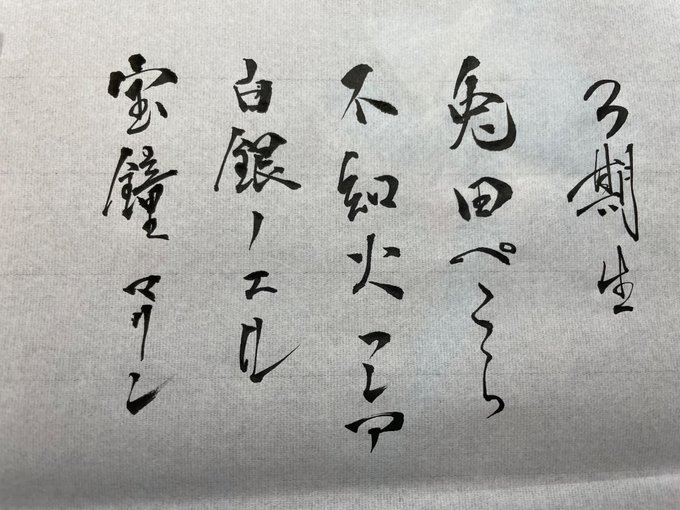 3期生
兎田ぺこら
不知火フレア
白銀ノエル
宝鐘マリン